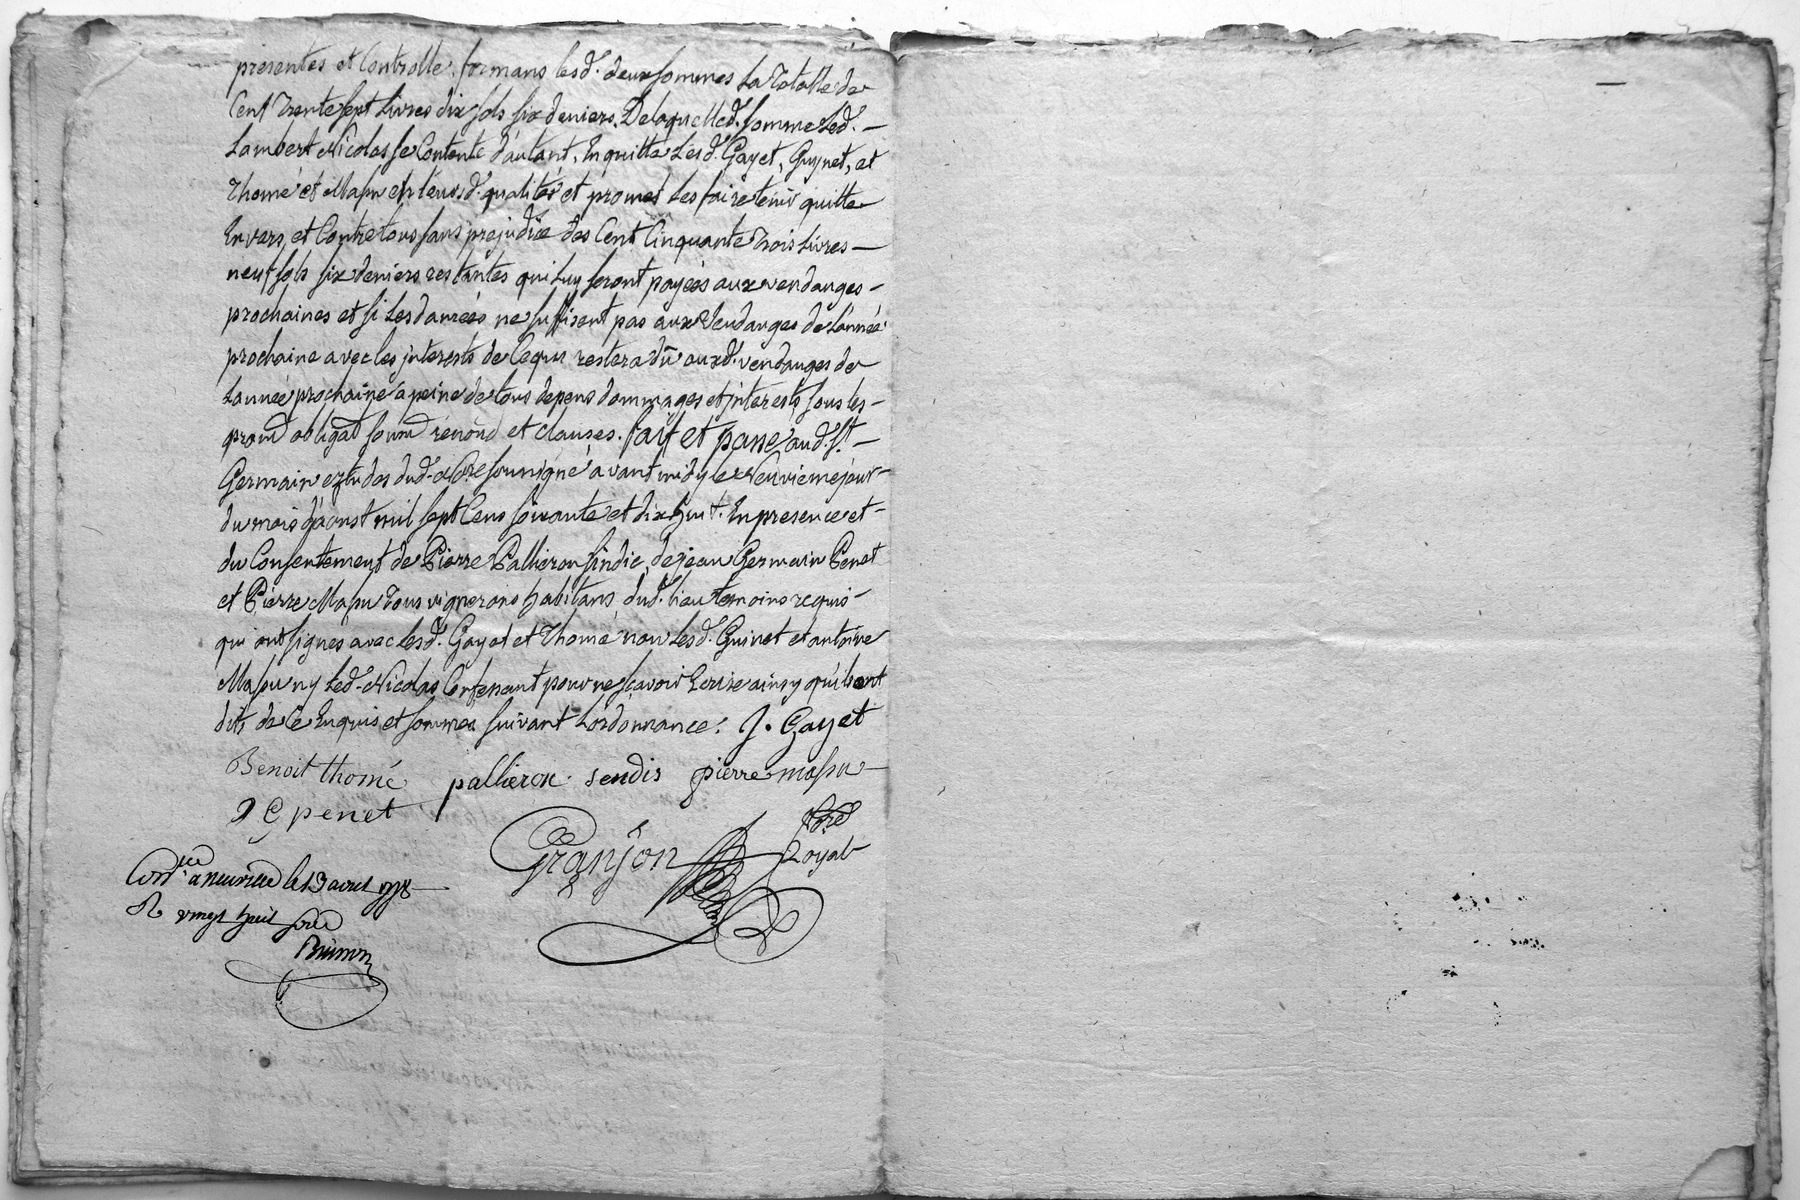 presentes et Controlle, formans lesd. deux sommes La Totalle de
Cent Trente sept Livres dix sols six deniers, De laquelle d. somme Led. —
Lambert Nicolas se Contente d'autant, En quitte Lesd. Gayet, Guynet, et
Thomé et Masu en leurs d. qualités et promet Les faire tenir quitte
Envers, et Contre tous sans prejudice des Cent Cinquante Trois Livres —
neuf sols six deniers restantes qui Luy seront payées aux vendanges -
prochaines et si Les danrées ne suffisent pas aux Vendanges de L'année
prochaine avec les jnterests de Ce qui restera dû auxd. vendanges de
L'année prochaine a peine de tous depens dommages et jnterests, sous les -
prom obligat soum renond et clauses. fait et passé aud. St —
Germain etude dud. Nore soussigné avant midy le Neuvieme jour -
du mois d'aoust mil sept Cens soixante et dix huit. En presence et -
du Consentement de Pierre Pallieron sindic, de jean Germain Penet
et Pierre Masu Tous vignerons habitans dud. lieu temoins requis -
qui ont signés avec lesd. Gayet et Thomé non Lesd. Guinet et antoine
Masu ny Led. Nicolas Confessant pour ne sçavoir Ecrire ainsy qu'ils ont
dits de Ce Enquis et sommés suivant L'ordonnance: J. Gayet
Benoit thomé pallieron sendis pierre masu
J G penet
Granjon Nore Royal
a neuville le 13 aout 1778
R vingt huit sols